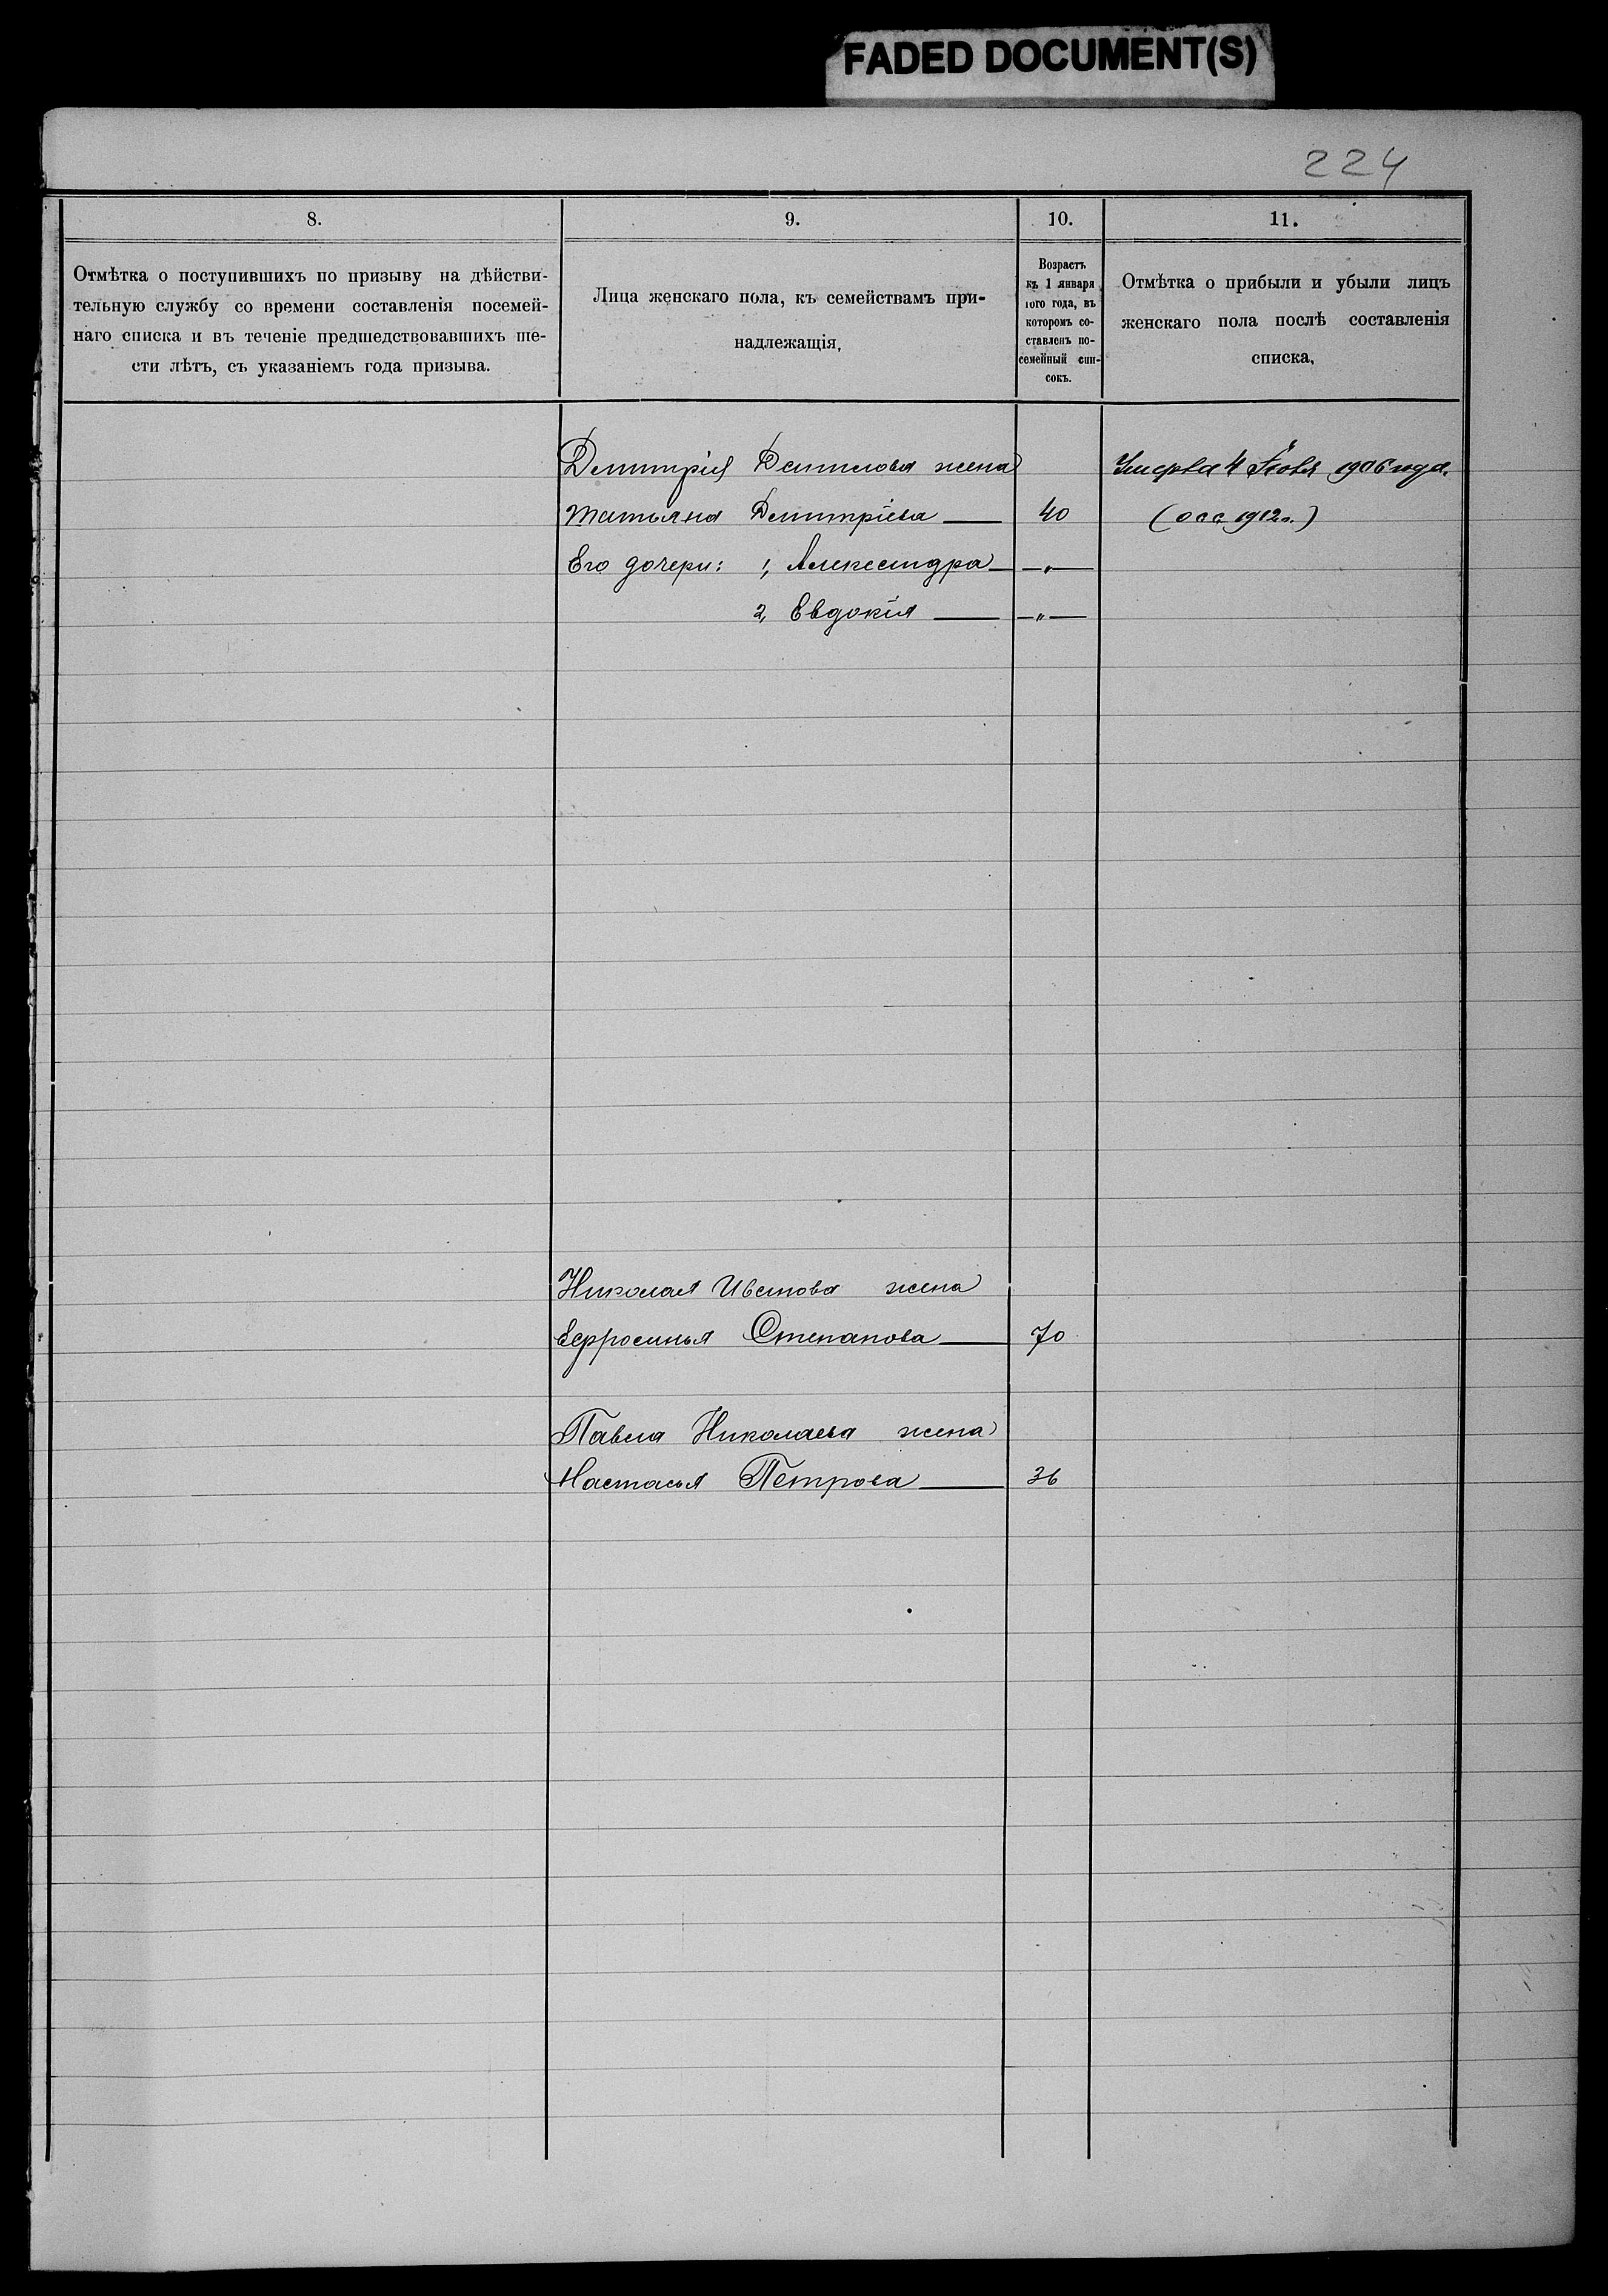 FADED DOCUMENT(S)
224
8.
9.
10.
11.
Отмѣтка о поступившихъ по призыву на дѣйстви-
тельную службу со времени составленія посемей-
наго списка и въ теченіе предшедствовавшихъ ше-
сти лѣтъ, съ указаніемъ года призыва.
Лица женскаго пола, къ семействамъ при-
надлежащія,
Возрастъ
къ 1 января
того года, въ
которомъ со-
ставленъ по-
семейный спи-
сокъ.
Отмѣтка о прибыли и убыли лицъ
женскаго пола послѣ составленія
списка,
Дмитрія жена
Умерла 4 1906 года.
Татьяна Дмитріева — 40
(осс. 1912 г.)
Его дочери: 1, Александра — — „ —
2, Евдокія — — „ —
Николая Иванова жена
Ефросинья Степанова — 70
Павла Николаева жена
Настасья Петрова — 36